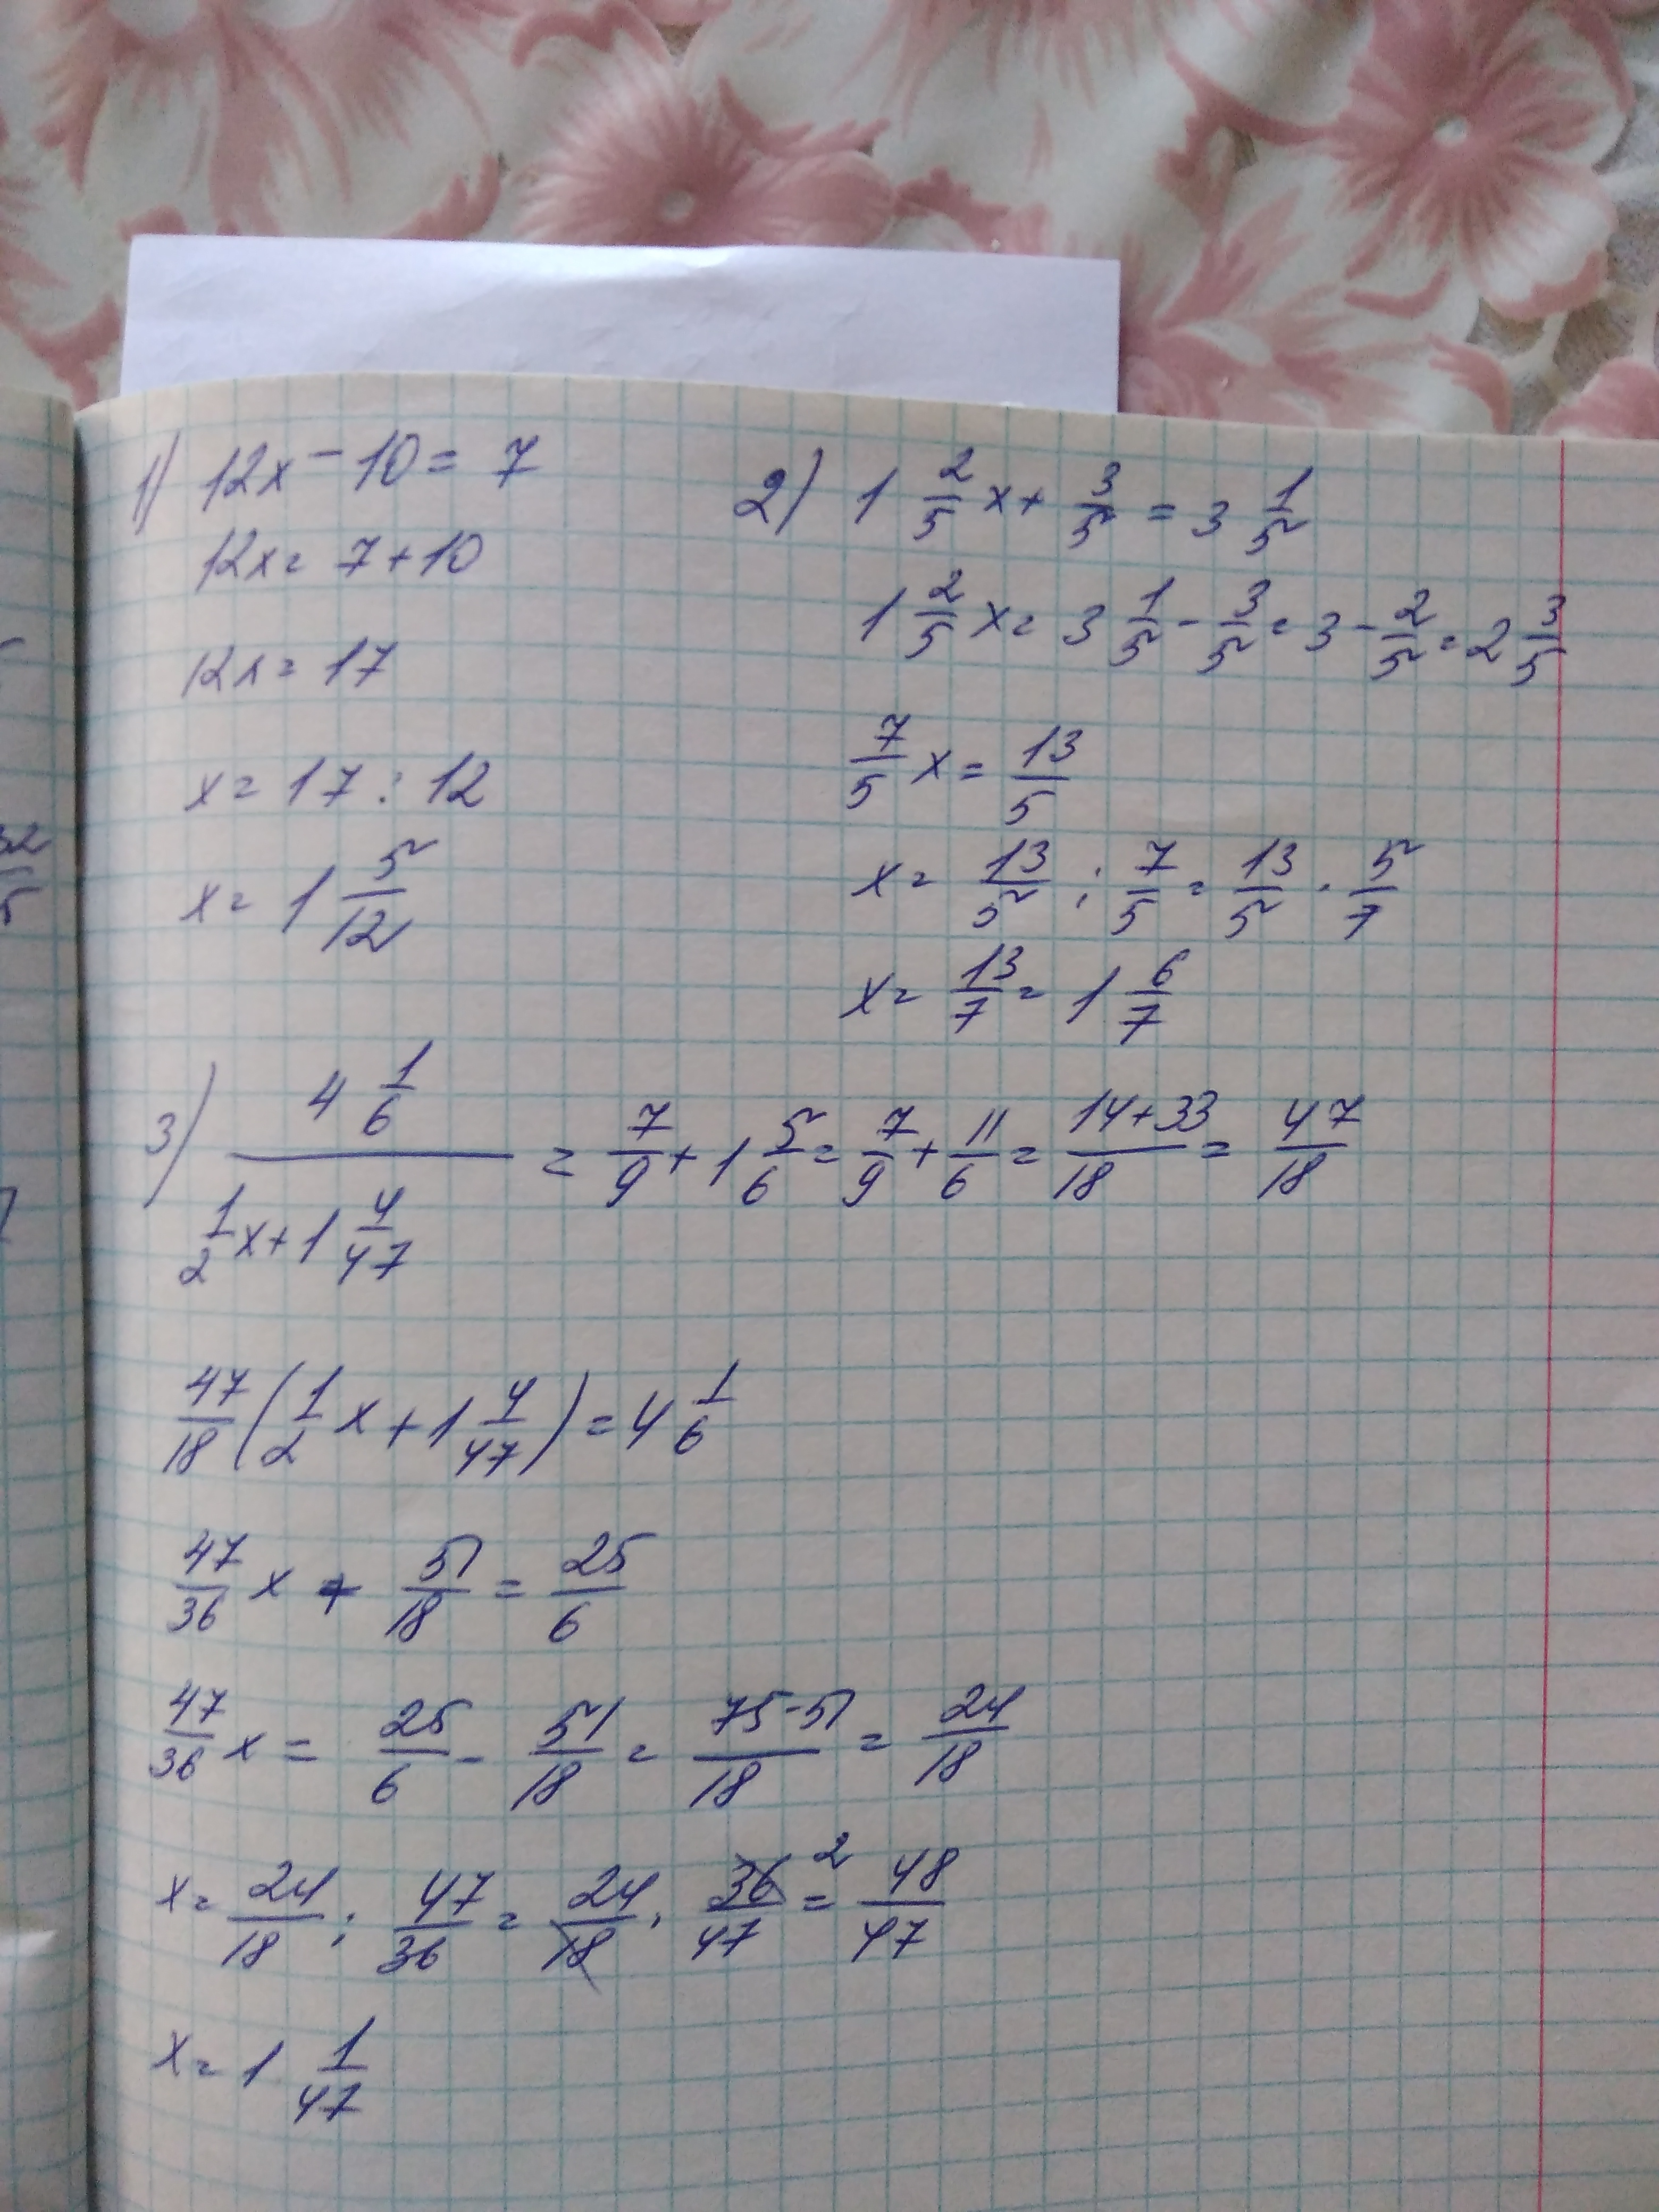 1) 12x - 10 = 7
12x = 7 + 10
12x = 17
x = 17 : 12
x = 1 5/12
2) 1 2/5 x + 3/5 = 3 1/5
1 2/5 x = 3 1/5 - 3/5 = 3 - 2/5 = 2 3/5
7/5 x = 13/5
x = 13/5 : 7/5 = 13/5 · 5/7
x = 13/7 = 1 6/7
3) (4 1/6)/(1/2 x + 1 4/47) = 7/9 + 1 5/6 = 7/9 + 11/6 = (14+33)/18 = 47/18
47/18 (1/2 x + 1 4/47) = 4 1/6
47/36 x + 51/18 = 25/6
47/36 x = 25/6 - 51/18 = (75-51)/18 = 24/18
x = 24/18 : 47/36 = 24/18 · 36/47 2 = 48/47
x = 1 1/47